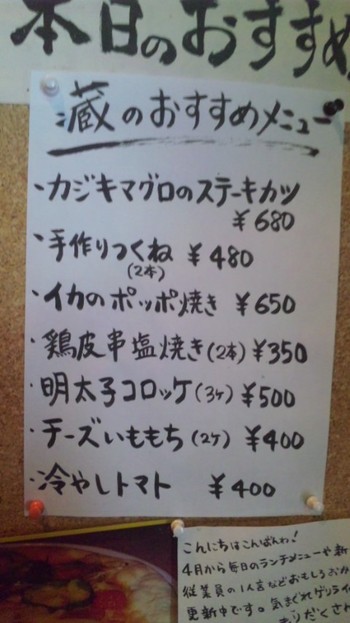 本日のおすすめ
蔵のおすすめメニュー
・カジキマグロのステーキカツ
¥680
・手作りつくね ¥480
(2本)
・イカのポッポ焼き ¥650
・鶏皮串塩焼き(2本)¥350
・明太子コロッケ(3ヶ)¥500
・チーズいももち(2ヶ)¥400
・冷やしトマト ¥400
こんにちはこんばんわ!
4月から毎日のランチメニューや新
従業員の1人言などおもしろおか
更新中です。気まぐれゲリライ
だくさ